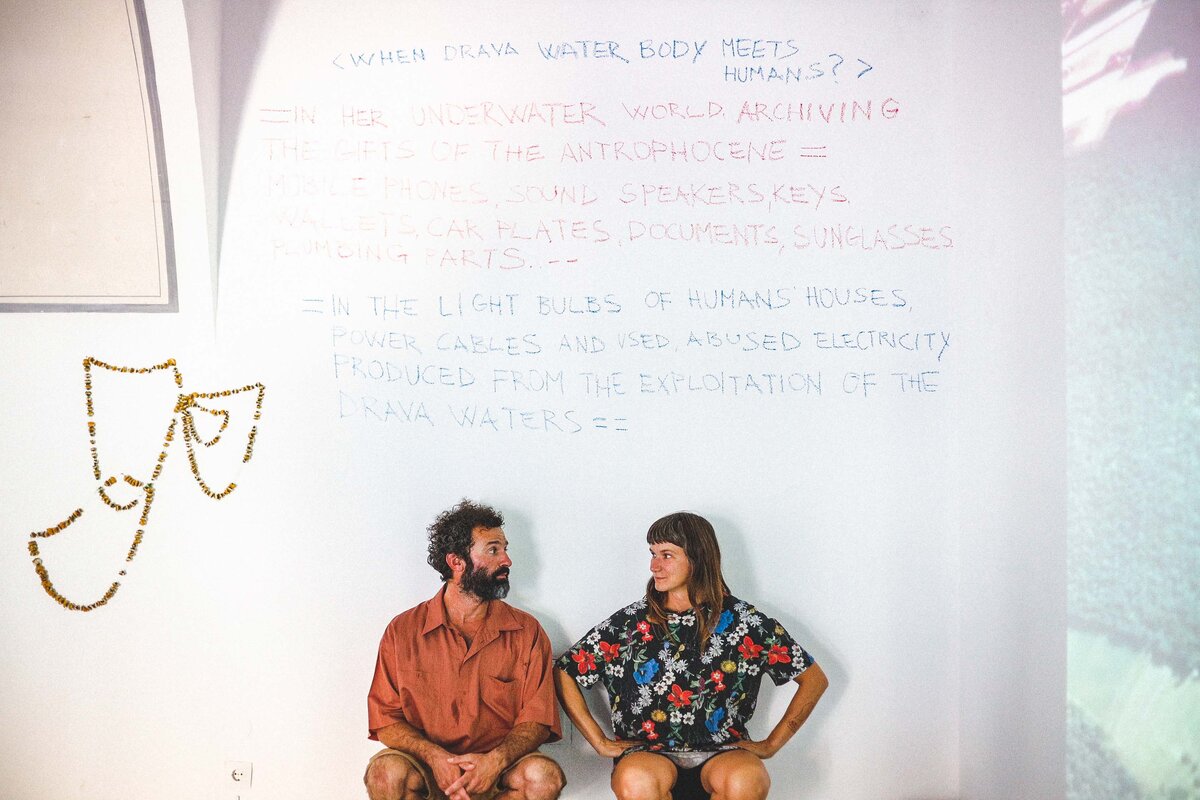 <WHEN DRAVA WATER BODY MEETS
HUMANS?>
=IN HER UNDERWATER WORLD. ARCHIVING
THE GIFTS OF THE ANTROPHOCENE =
MOBILE PHONES, SOUND SPEAKERS, KEYS.
WALLETS, CAR PLATES, DOCUMENTS, SUNGLASSES
PLUMBING PARTS..--
=IN THE LIGHT BULBS OF HUMANS' HOUSES,
POWER CABLES AND USED, ABUSED ELECTRICITY
PRODUCED FROM THE EXPLOITATION OF THE
DRAVA WATERS ==